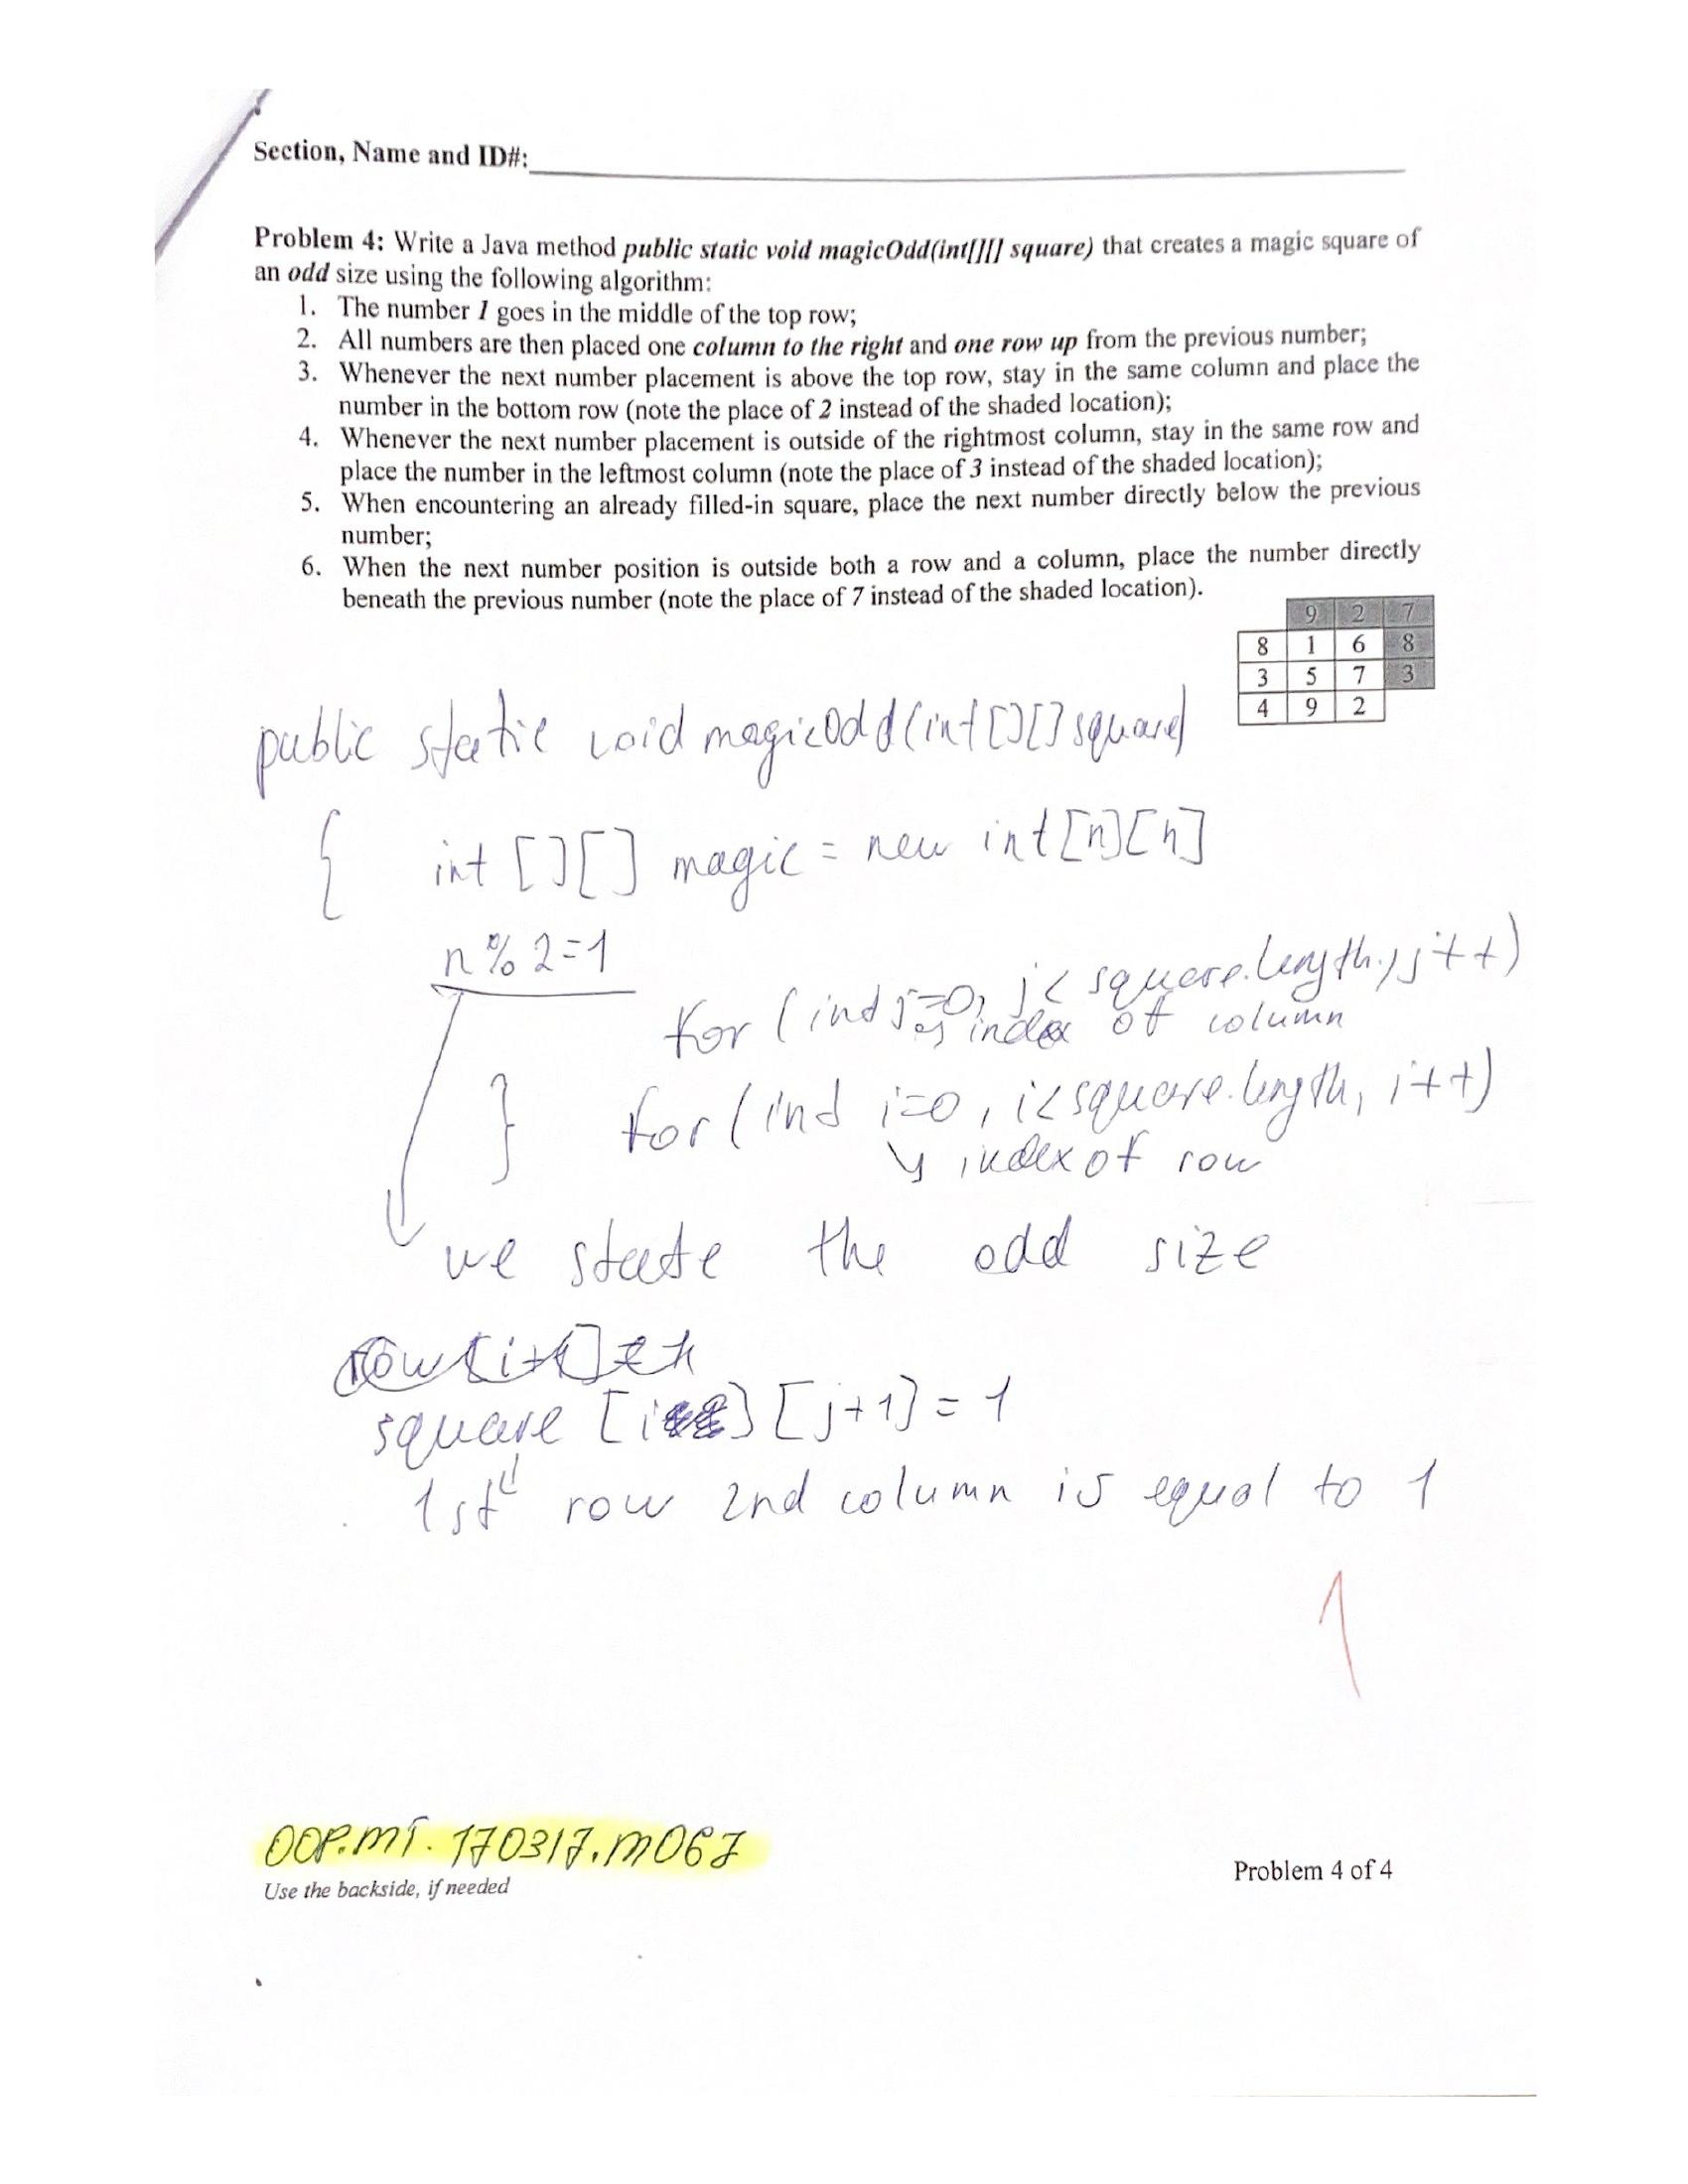 Section, Name and ID#:
Problem 4: Write a Java method public static void magicOdd(int[][] square) that creates a magic square of
an odd size using the following algorithm:
1. The number 1 goes in the middle of the top row;
2. All numbers are then placed one column to the right and one row up from the previous number;
3. Whenever the next number placement is above the top row, stay in the same column and place the
number in the bottom row (note the place of 2 instead of the shaded location);
4. Whenever the next number placement is outside of the rightmost column, stay in the same row and
place the number in the leftmost column (note the place of 3 instead of the shaded location);
5. When encountering an already filled-in square, place the next number directly below the previous
number;
6. When the next number position is outside both a row and a column, place the number directly
beneath the previous number (note the place of 7 instead of the shaded location).
9 2 7
8 1 6 8
3 5 7 3
4 9 2
public static void magicOdd(int[][] square)
{ int [][] magic = new int[n][n]
n % 2=1
for (ind j=0, j< square.length, j++)
index of column
} for (ind i=0, i<square.length, i++)
index of row
we state the odd size
square [i] [j+1] = 1
1st row 2nd column is equal to 1
1
OOP.MT.170317.M067
Use the backside, if needed
Problem 4 of 4